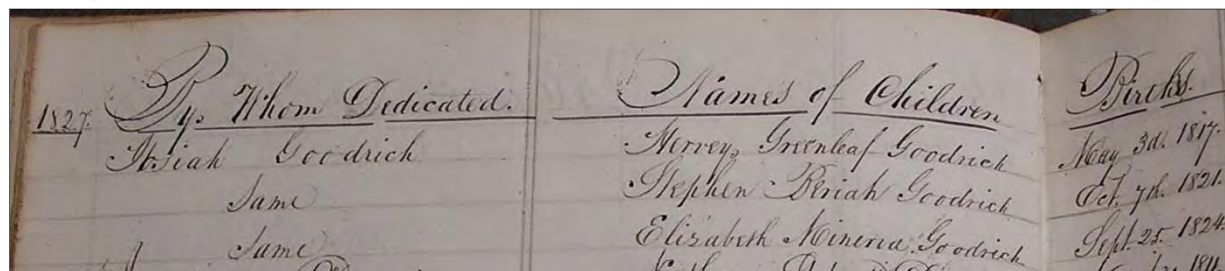 1827. By Whom Dedicated. Names of Children Births.
Goodrich Greenleaf Goodrich May 3d. 1817.
Same Stephen Beriah Goodrich Oct. 7th. 1821.
Same Elizabeth Minerva Goodrich Sept. 25. 1824.